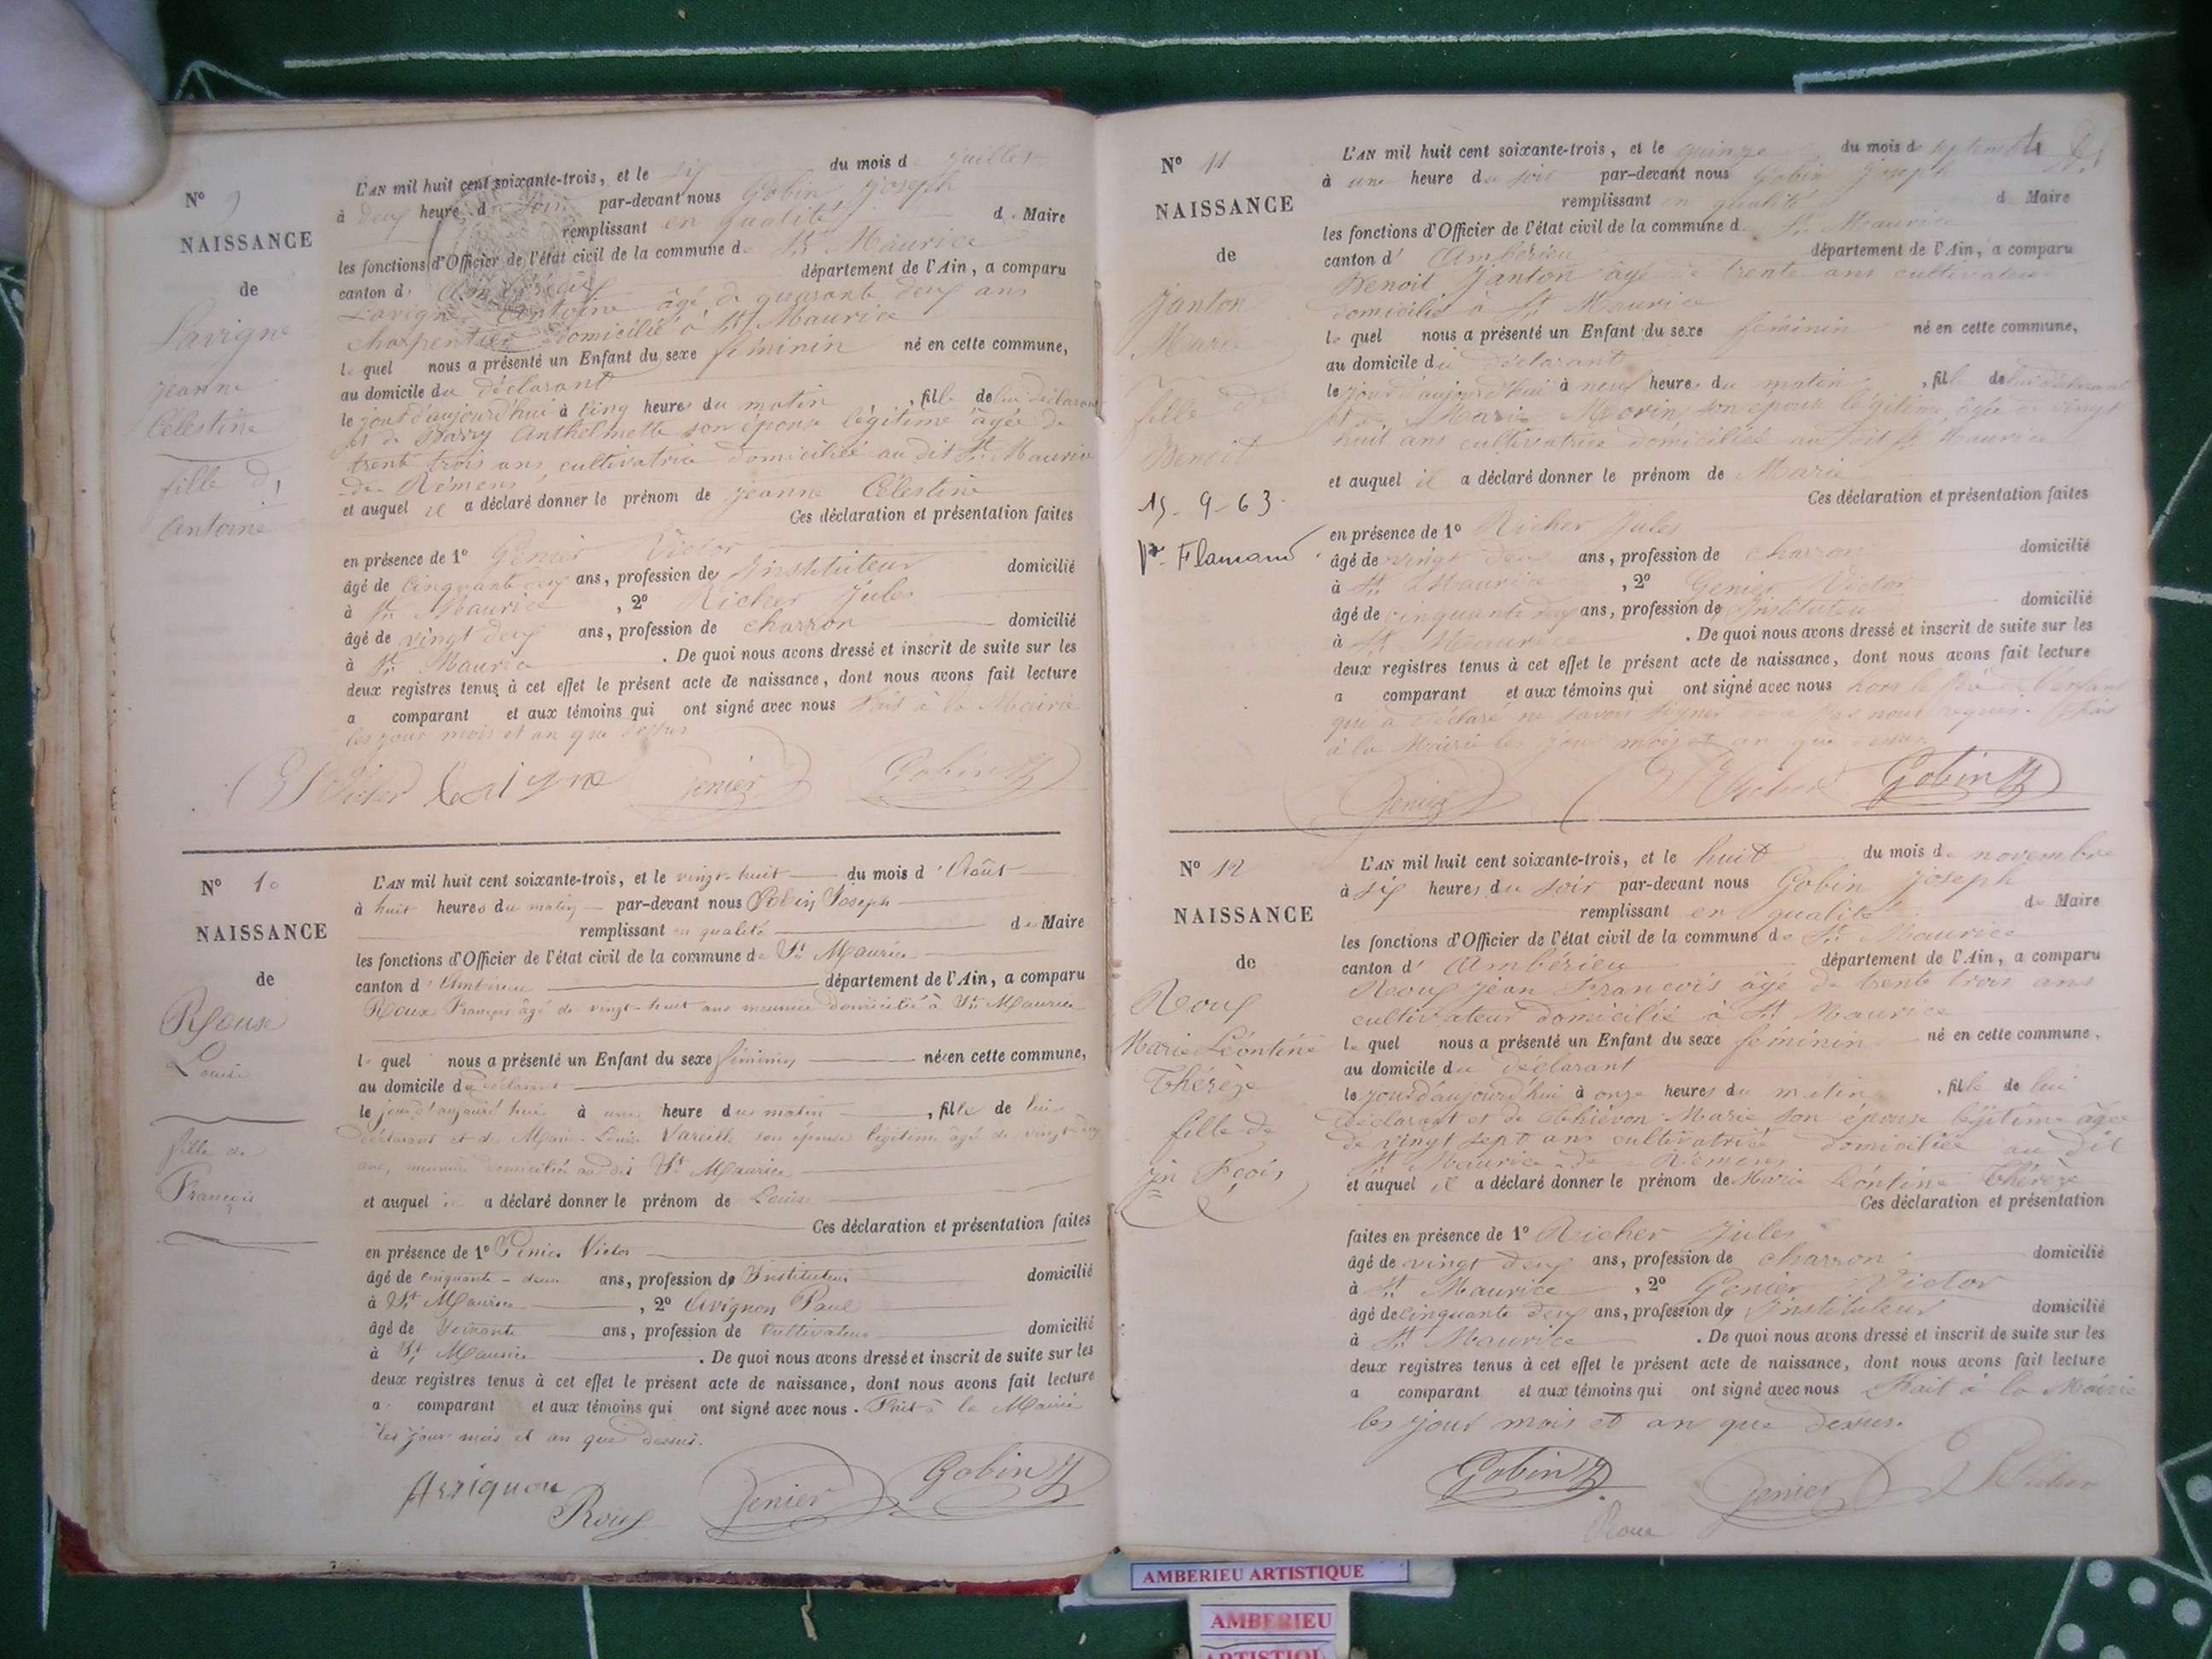 N° 9
NAISSANCE
de
Lavigne
Jeanne
Célestine
fille d'
Antoine
L'AN mil huit cent soixante-trois, et le six du mois de juillet
à deux heure du soir par-devant nous Gobin Joseph
remplissant en qualité de Maire
les fonctions d'Officier de l'état civil de la commune de St. Maurice
canton d'Ambérieu département de l'Ain, a comparu
Lavigne Antoine âgé de quarante deux ans
charpentier domicilié à St. Maurice
lequel nous a présenté un Enfant du sexe féminin né en cette commune,
au domicile du déclarant
le jour d'aujourd'hui à cinq heures du matin, fille de lui déclarant
et de Barry Anthelmette son épouse légitime âgée de
trente trois ans, cultivatrice domiciliée au dit St. Maurice
de Rémens
et auquel il a déclaré donner le prénom de Jeanne Célestine
Ces déclaration et présentation faites
en présence de 1° Genier Victor
âgé de cinquante deux ans, profession de Instituteur domicilié
à St. Maurice, 2° Richer Jules
âgé de vingt deux ans, profession de charron domicilié
à St. Maurice. De quoi nous avons dressé et inscrit de suite sur les
deux registres tenus à cet effet le présent acte de naissance, dont nous avons fait lecture
a comparant et aux témoins qui ont signé avec nous Fait à la Mairie
les jour mois et an que dessus
Richer Lavigne Genier Gobin J
N° 10
NAISSANCE
de
Rouse
Louise
fille de
François
L'AN mil huit cent soixante-trois, et le vingt-huit du mois d'Août
à huit heures du matin par-devant nous Gobin Joseph
remplissant en qualité de Maire
les fonctions d'Officier de l'état civil de la commune de St Maurice
canton d'Ambérieu département de l'Ain, a comparu
Roux François âgé de vingt-huit ans meunier domicilié à St. Maurice
lequel nous a présenté un Enfant du sexe féminin né en cette commune,
au domicile du déclarant
le jour d'aujourd'hui à une heure du matin, fille de lui
déclarant et de Marie Louise Vareille son épouse légitime âgé de
ans, domiciliée au dit St Maurice
et auquel il a déclaré donner le prénom de Louise
Ces déclaration et présentation faites
en présence de 1° Genier Victor
âgé de cinquante-deux ans, profession de Instituteur domicilié
à St Maurice, 2° Avignon Paul
âgé de soixante ans, profession de Cultivateur domicilié
à St Maurice. De quoi nous avons dressé et inscrit de suite sur les
deux registres tenus à cet effet le présent acte de naissance, dont nous avons fait lecture
a comparant et aux témoins qui ont signé avec nous. Fait à la Mairie
les jour mois et an que dessus.
Roux Genier Gobin J
N° 11
NAISSANCE
de
Janton
Marie
fille de
Benoit
15-9-63
Flamand
L'AN mil huit cent soixante-trois, et le quinze du mois de septembre
à une heure du soir par-devant nous Gobin Joseph
remplissant en qualité de Maire
les fonctions d'Officier de l'état civil de la commune d. St. Maurice
canton d'Ambérieu département de l'Ain, a comparu
Benoit Janton âgé de trente ans cultivateur
domicilié à St Maurice
lequel nous a présenté un Enfant du sexe féminin né en cette commune,
au domicile du déclarant
le jour d'aujourd'hui à neuf heures du matin, fille de lui déclarant
et de Marie Morin son épouse légitime, âgée de vingt
huit ans cultivatrice domiciliée au dit St. Maurice
et auquel il a déclaré donner le prénom de Marie
Ces déclaration et présentation faites
en présence de 1° Richer Jules
âgé de vingt deux ans, profession de charron domicilié
à St. Maurice, 2° Genier Victor
âgé de cinquante deux ans, profession de Instituteur domicilié
à St. Maurice. De quoi nous avons dressé et inscrit de suite sur les
deux registres tenus à cet effet le présent acte de naissance, dont nous avons fait lecture
a comparant et aux témoins qui ont signé avec nous hors le père de l'enfant
qui a déclaré ne savoir signer de ce par nous requis. Fait
à la Mairie les jour mois et an que dessus
Genier Richer Gobin J
N° 12
NAISSANCE
de
Roux
Marie Léontine
Thérèze
fille de
Jn Fçois
L'AN mil huit cent soixante-trois, et le huit du mois de novembre
à six heures du soir par-devant nous Gobin Joseph
remplissant en qualité de Maire
les fonctions d'Officier de l'état civil de la commune de St. Maurice
canton d'Ambérieu département de l'Ain, a comparu
Roux Jean François âgé de trente trois ans
cultivateur domicilié à St Maurice
lequel nous a présenté un Enfant du sexe féminin né en cette commune,
au domicile du déclarant
le jour d'aujourd'hui à onze heures du matin, fille de lui
déclarant et de Thiévon Marie son épouse légitime âgée
de vingt sept ans cultivatrice domiciliée au dit
St Maurice de Rémens
et auquel il a déclaré donner le prénom de Marie Léontine Thérèze
Ces déclaration et présentation
faites en présence de 1° Richer Jules
âgé de vingt deux ans, profession de charron domicilié
à St. Maurice, 2° Genier Victor
âgé de cinquante deux ans, profession de Instituteur domicilié
à St. Maurice. De quoi nous avons dressé et inscrit de suite sur les
deux registres tenus à cet effet le présent acte de naissance, dont nous avons fait lecture
a comparant et aux témoins qui ont signé avec nous Fait à la Mairie
les jour mois et an que dessus.
Gobin J Genier Richer
Roux
AMBERIEU ARTISTIQUE
AMBERIEU
ARTISTIQU